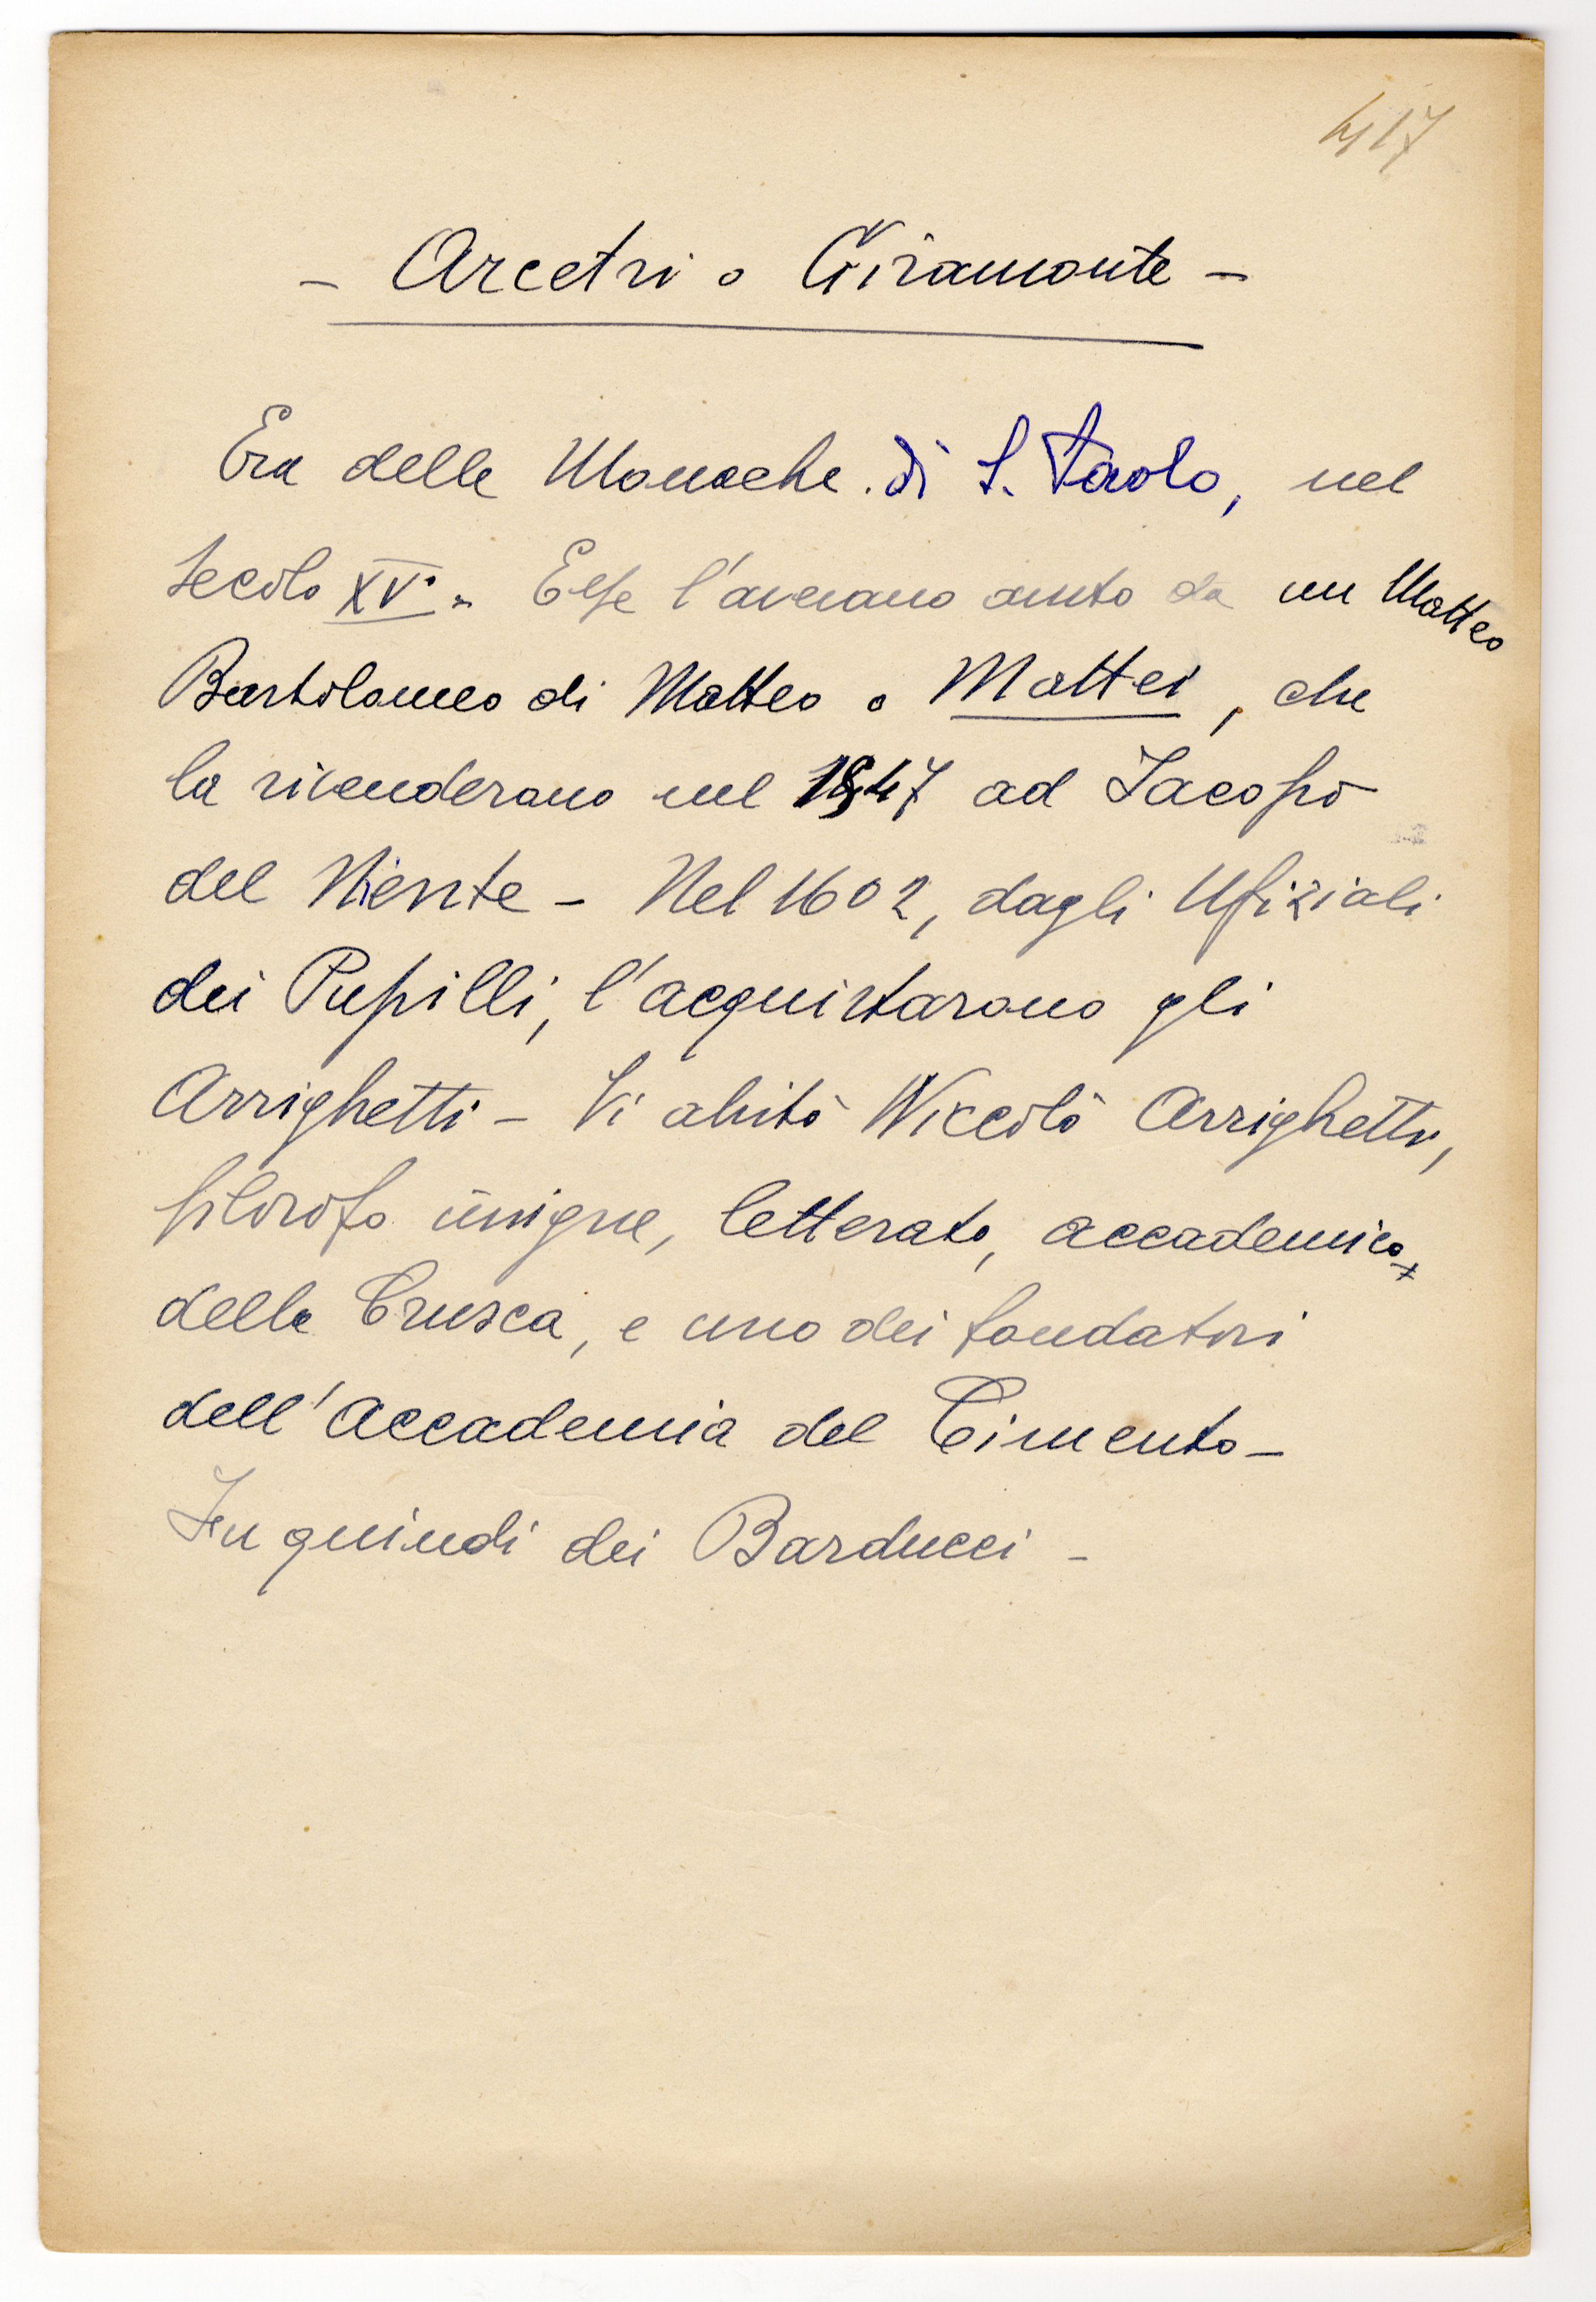 417
- Arcetri o Giramonte -
Era delle Monache di S. Paolo, nel
secolo XV°. Esse l'avevano avuto da un Matteo
Bartolomeo di Matteo o Mattei, che
la rivenderono nel 1547 ad Iacopo
del Niente - Nel 1602, dagli Ufiziali
dei Pupilli, l'acquistarono gli
Arrighetti - Vi abitò Niccolò Arrighetti,
filosofo insigne, letterato, accademico
della Crusca, e uno dei fondatori
dell'Accademia del Cimento -
Fu quindi dei Barducci -